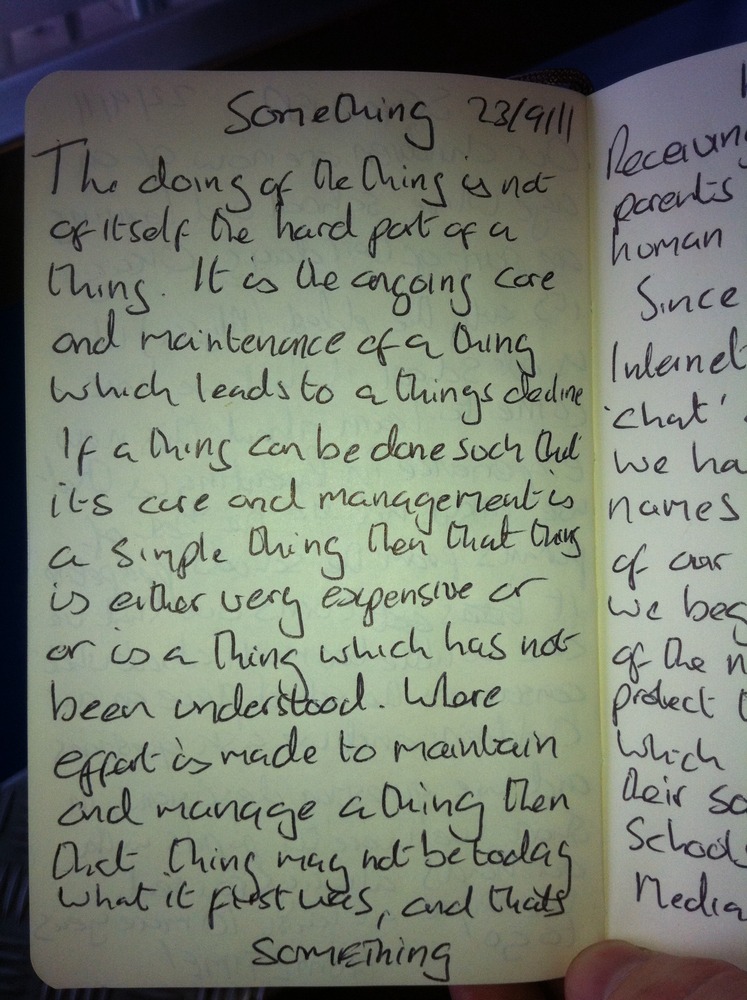 Something 23/9/11
The doing of the thing is not
of itself the hard part of a
thing. It is the ongoing care
and maintenance of a thing
which leads to a things decline
If a thing can be done such that
its care and management is
a simple thing then that thing
is either very expensive or
or is a thing which has not
been understood. Where
effort is made to maintain
and manage a thing then
that thing may not be today
what it first was, and thats
SOMETHING
Receiving
parents
human
Since
Internet
'chat'
we ha
names
of our
we beg
of the n
protect t
which
their so
Schools
Media